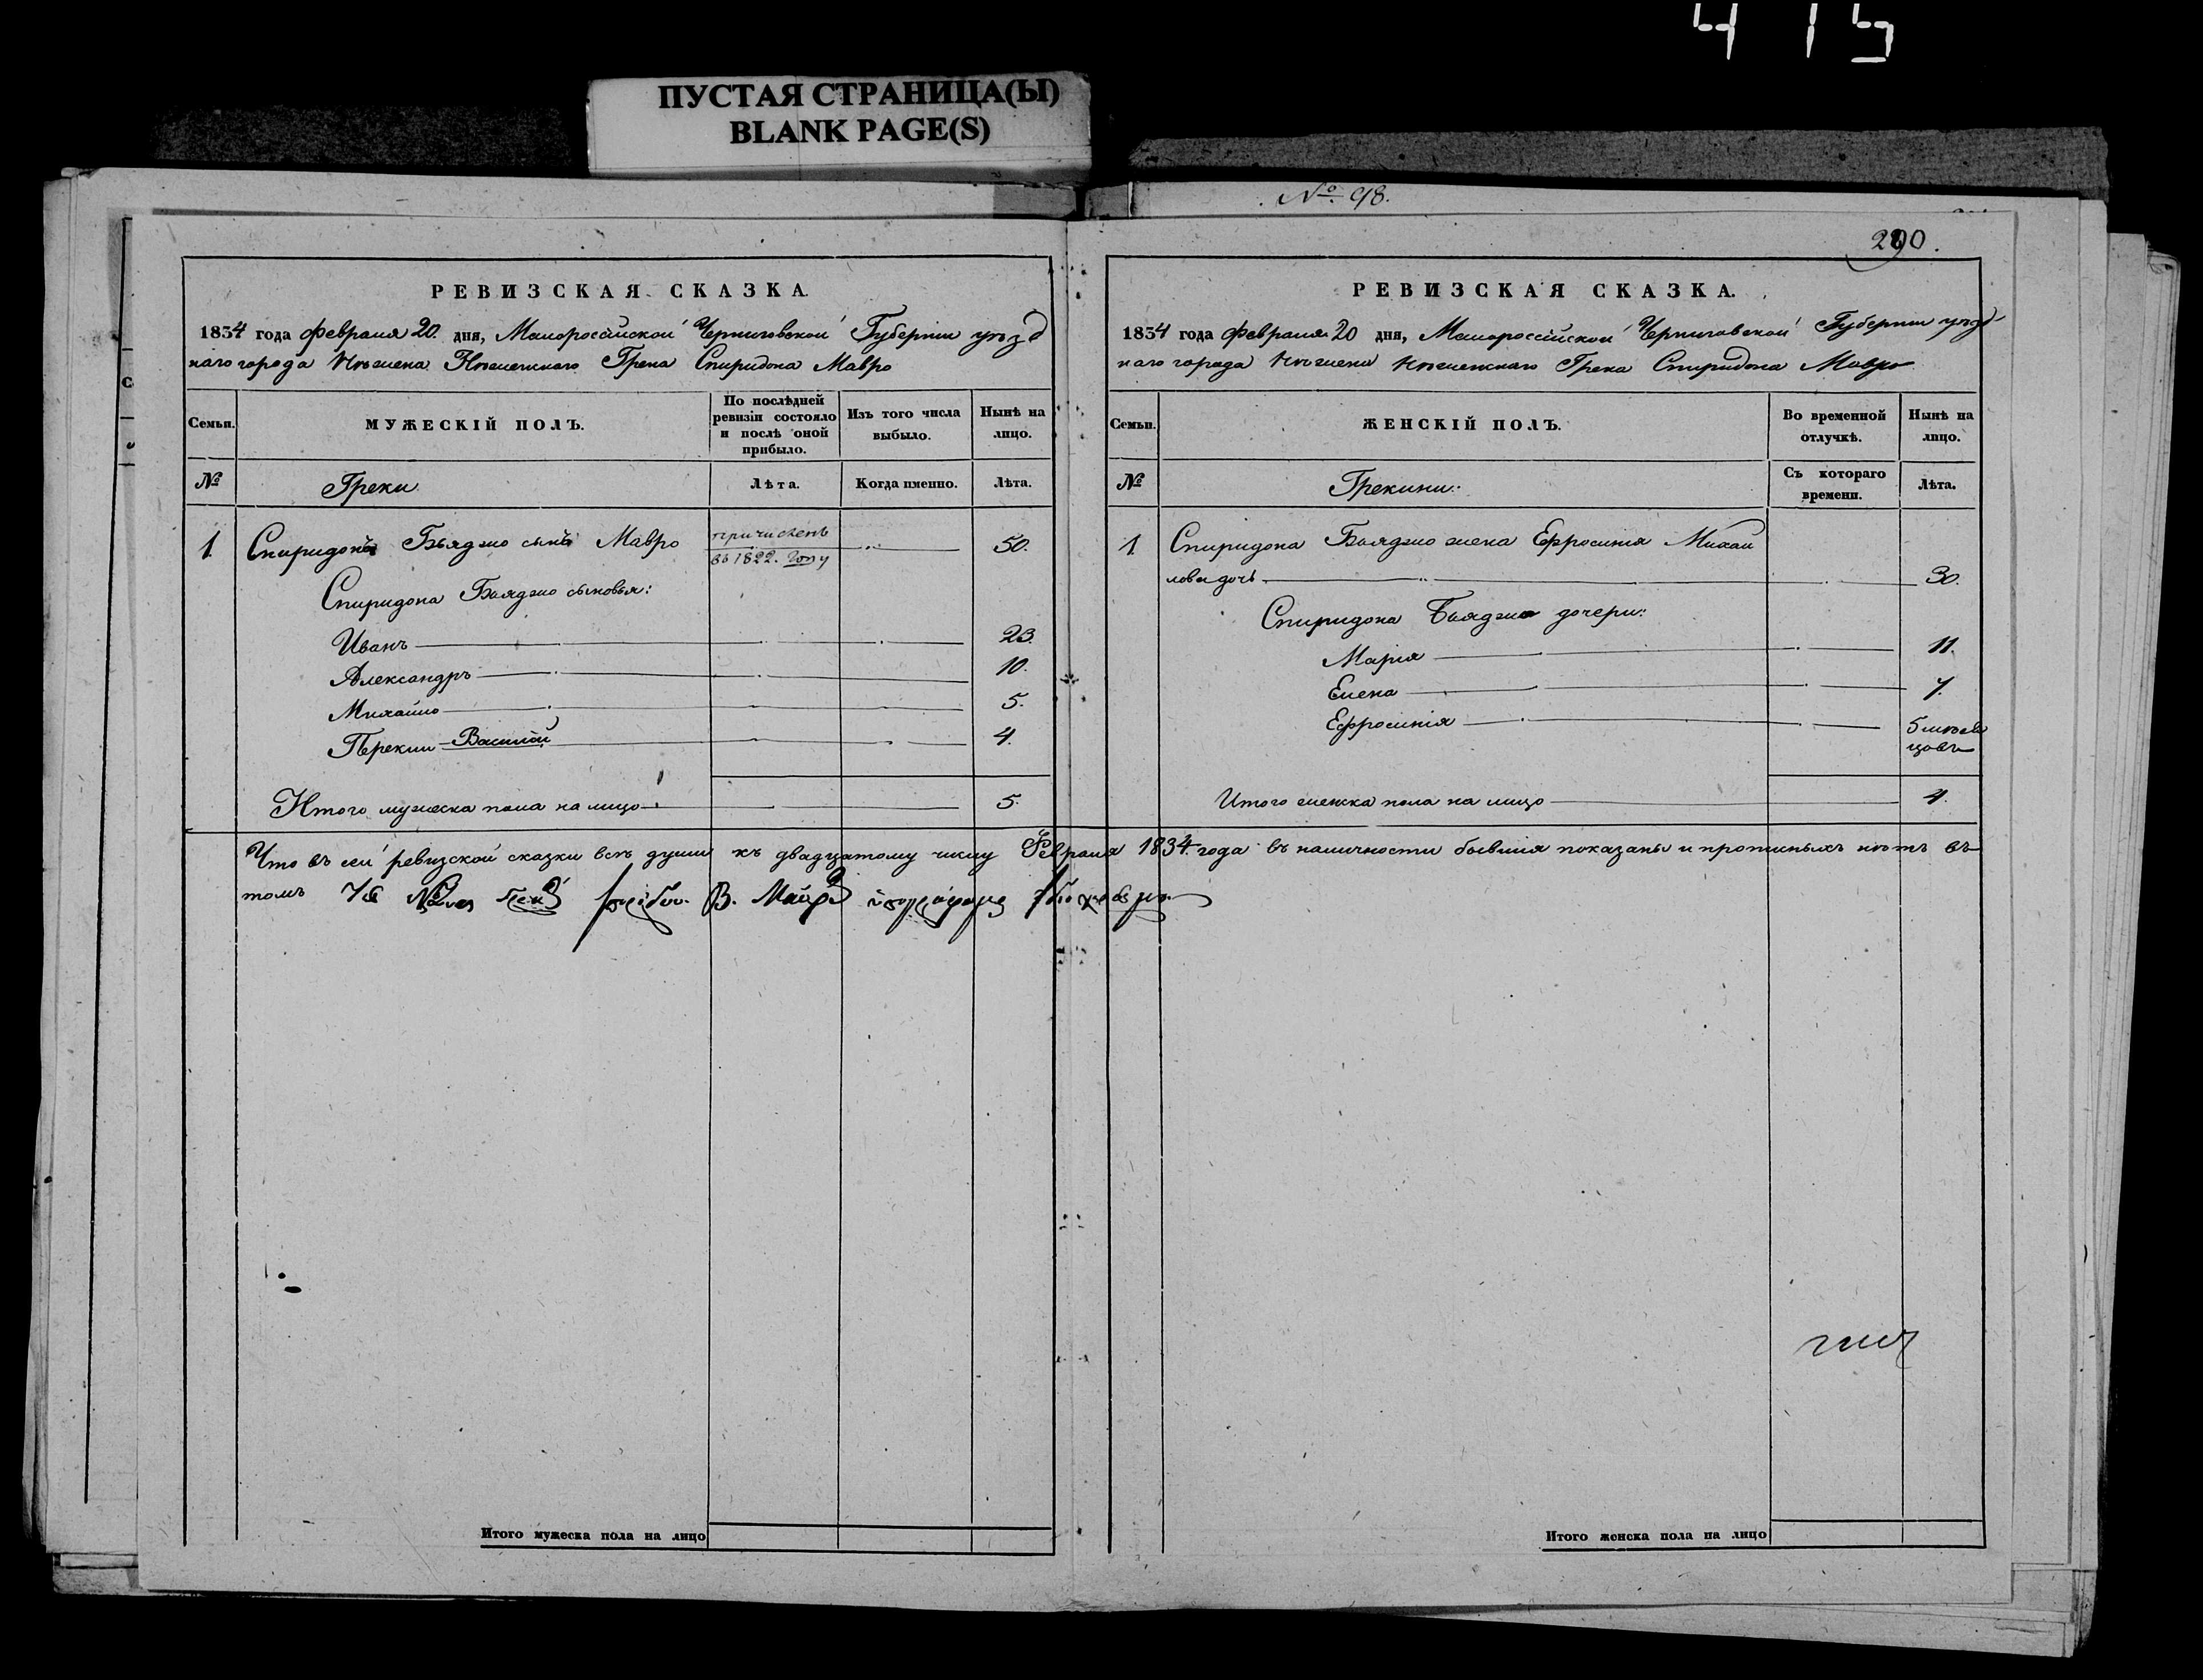 415
ПУСТАЯ СТРАНИЦА(Ы)
BLANK PAGE(S)
№ 98.
290.
РЕВИЗСКАЯ СКАЗКА.
1834 года Февраля 20. дня, Малоросійской Черниговской Губерніи уѣзд
наго города Нѣжена Нѣженскаго Грека Спиридона Мавро
Семьи.
МУЖЕСКІЙ ПОЛЪ.
По послѣдней ревизіи состояло и послѣ оной прибыло.
Изъ того числа выбыло.
Нынѣ на лицо.
№
Греки
Лѣта.
Когда именно.
Лѣта.
1 Спиридонъ Бьяджо сынъ Мавро причисленъ въ 1822. году 50.
Спиридона Бьяджо сыновья:
Иванъ 23.
Александръ 10.
Михайло 5.
Перекли Василій 4.
Итого мужеска пола на лицо 5.
РЕВИЗСКАЯ СКАЗКА.
1834 года Февраля 20 дня, Малороссійской Черниговской Губерніи уѣзд
наго города Нѣжена Нѣженскаго Грека Спиридона Мавро
Семьи.
ЖЕНСКІЙ ПОЛЪ.
Во временной отлучкѣ.
Нынѣ на лицо.
№
Грекини:
Съ котораго времени.
Лѣта.
1 Спиридона Бьяджо жена Ефросинія Михаи
лова дочь 30.
Спиридона Бьяджо дочери:
Марія 11.
Елена 7.
Ефросинія 5 мѣся
цовъ
Итого женска пола на лицо 4.
Что въ сей ревизской сказки всѣ души къ двадцатому числу Февраля 1834 года въ наличности бывшія показаны и прописныхъ нѣтъ въ
томъ
Итого мужеска пола на лицо
Итого женска пола на лицо